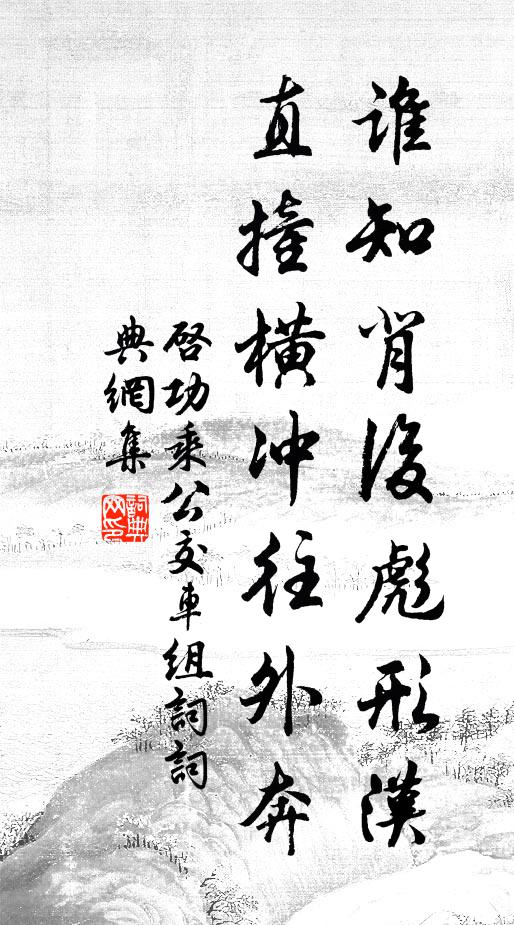 誰知背後彪形漢
直撞橫冲往外奔
啓功乘公交車組詞詞
典網集
詞典
网印